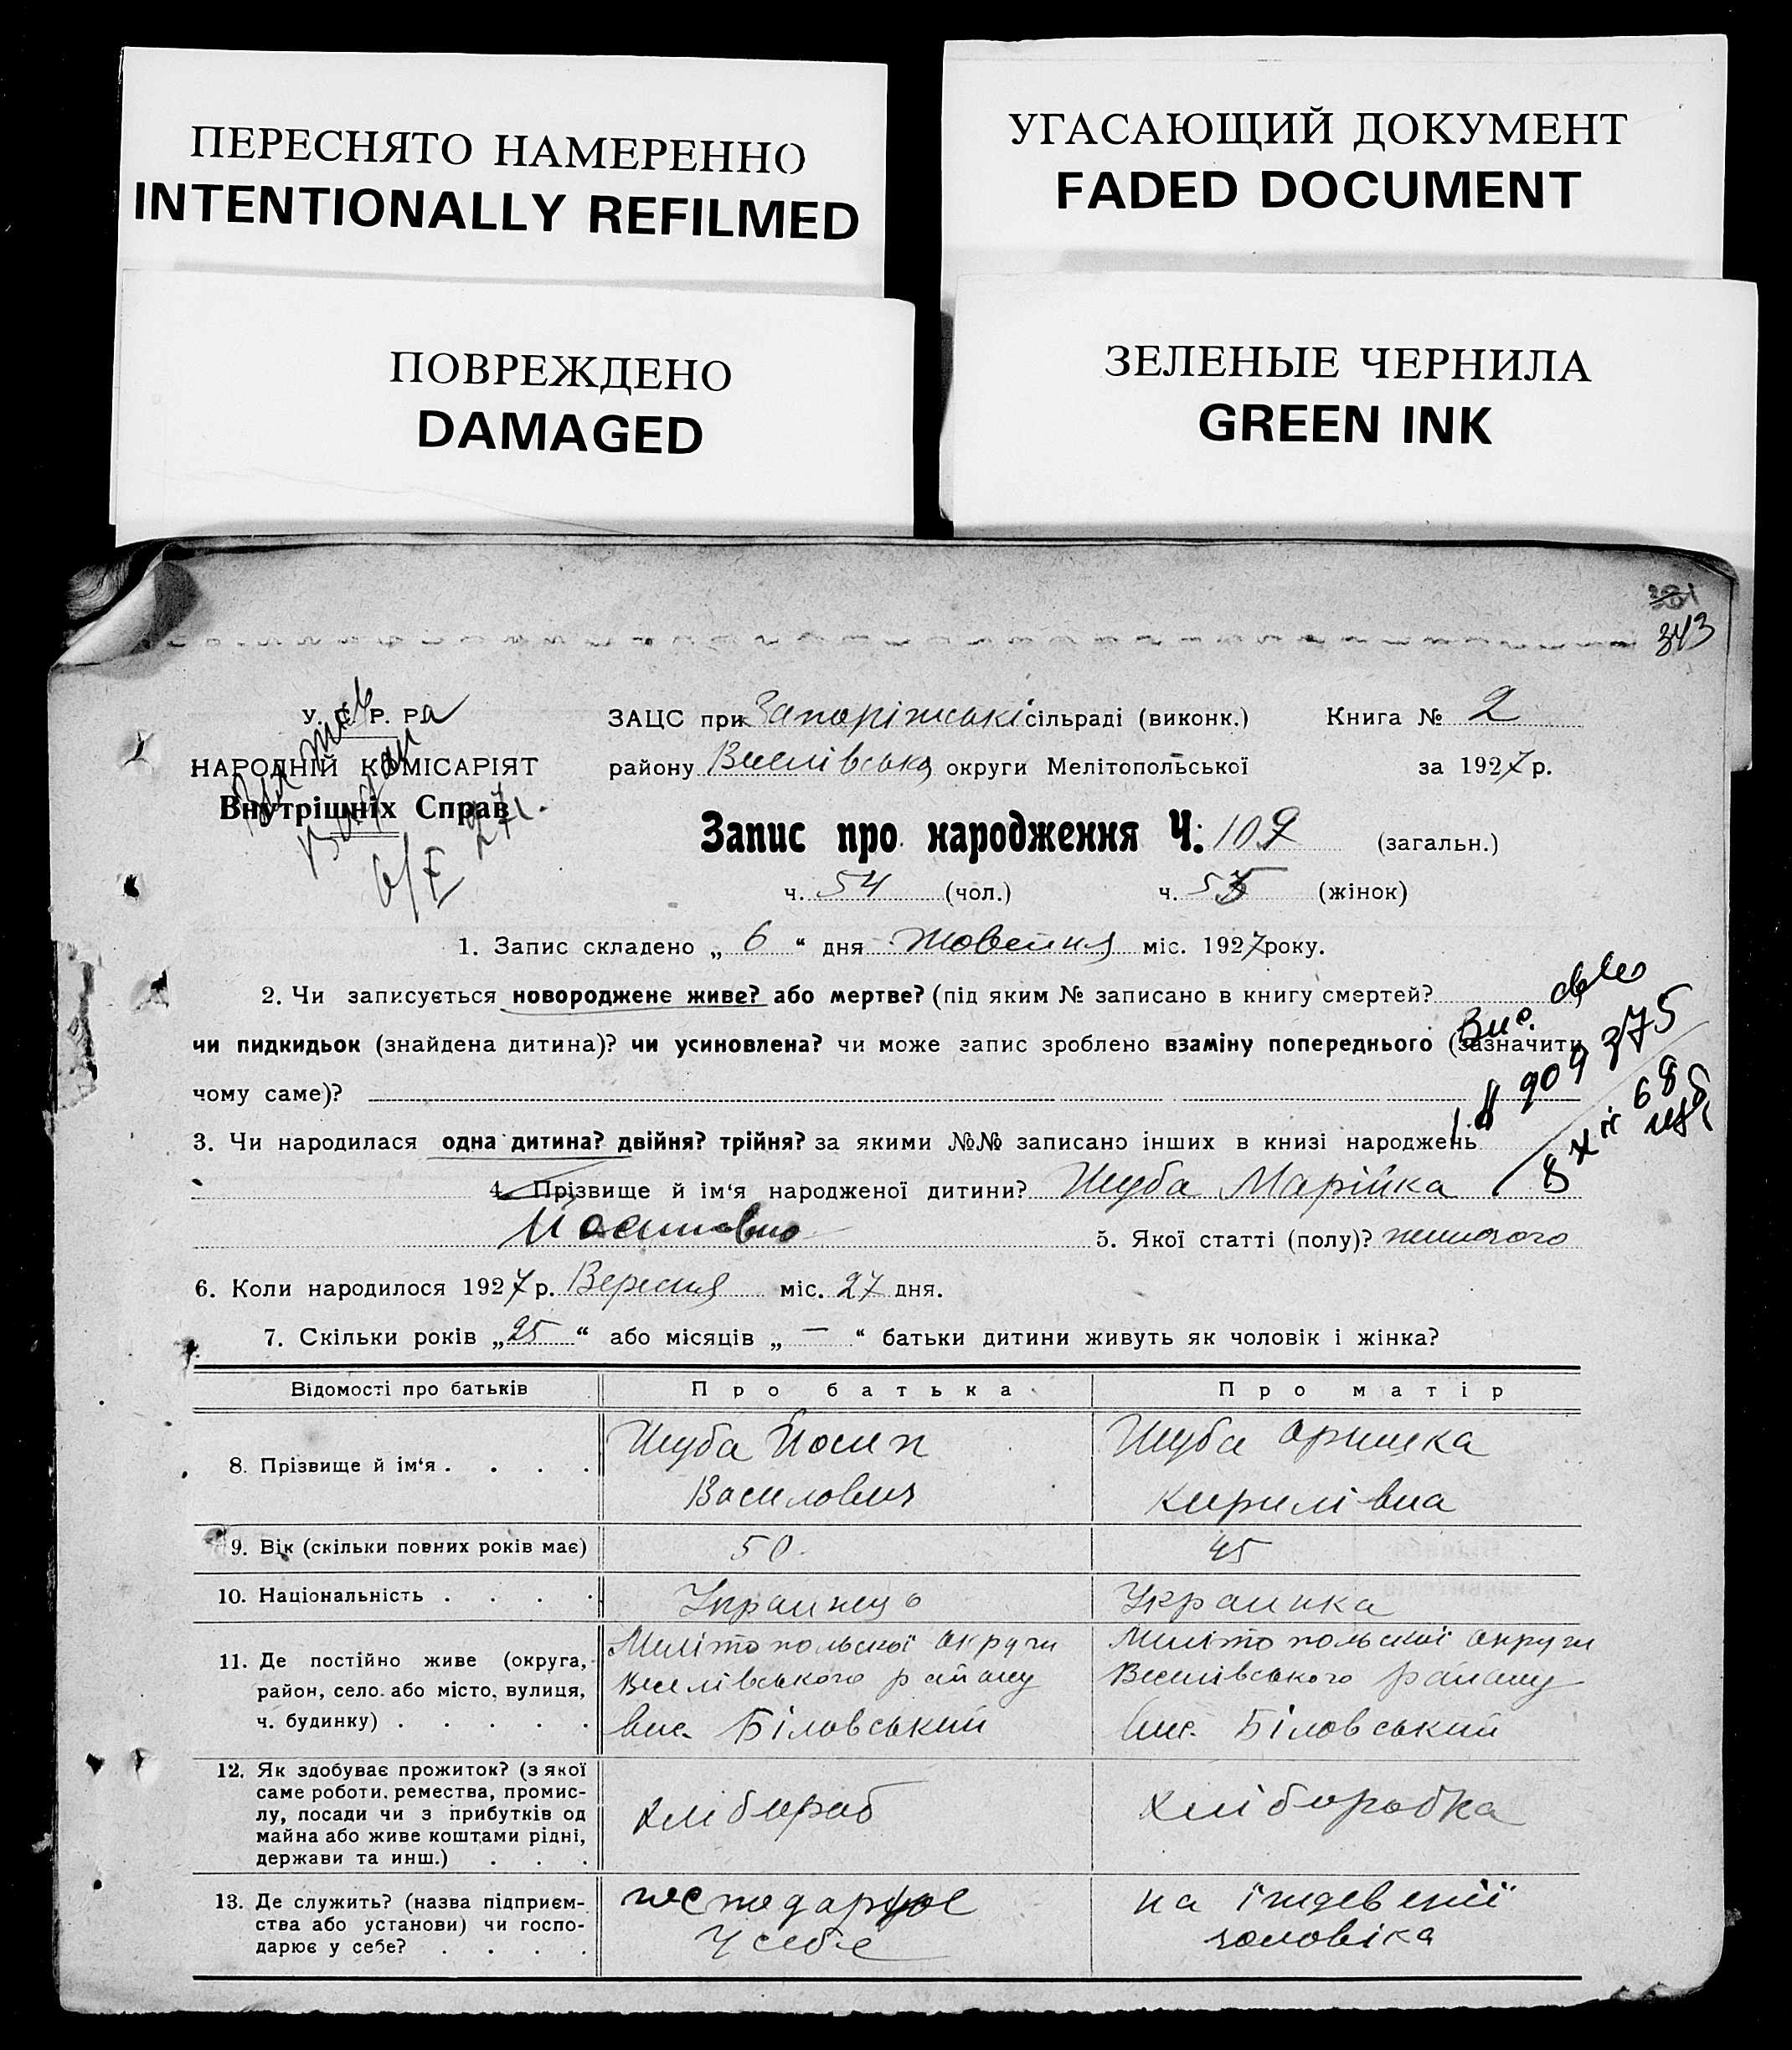 ПЕРЕСНЯТО НАМЕРЕННО
INTENTIONALLY REFILMED
УГАСАЮЩИЙ ДОКУМЕНТ
FADED DOCUMENT
ПОВРЕЖДЕНО
DAMAGED
ЗЕЛЕНЫЕ ЧЕРНИЛА
GREEN INK
343
У. С. Р. Р.
НАРОДНІЙ КОМІСАРІЯТ
Внутрішніх Справ
6/X 27 р.
ЗАЦС при Запоріжські сільраді (виконк.) Книга № 2
району Веселівсько округи Мелітопольської за 1927 р.
Запис про народження Ч. 109 (загальн.)
ч. 54 (чол.) ч. 55 (жінок)
1. Запис складено „ 6 “ дня Жовтня міс. 1927 року.
2. Чи записується новороджене живе? або мертве? (під яким № записано в книгу смертей?
чи пидкидьок (знайдена дитина)? чи усиновлена? чи може запис зроблено взаміну попереднього (зазначити
чому саме)?
909375
3. Чи народилася одна дитина? двійня? трійня? за якими №№ записано інших в книзі народжень
8 XII 68
4. Прізвище й ім‘я народженої дитини? Шуба Марійка
Йосиповно 5. Якої статті (полу)? жиночого
6. Коли народилося 1927 р. Вересня міс. 27 дня.
7. Скільки років „25“ або місяців „ — “ батьки дитини живуть як чоловік і жінка?
Відомості про батьків Про батька Про матір
8. Прізвище й ім‘я Шуба Йосип Шуба Оришка
Василович Кирилівна
9. Вік (скільки повних років має) 50 45
10. Національність Украинець Украинка
11. Де постійно живе (округа, Мелітопольської округи Мелітопольської округи
район, село або місто, вулиця, Веселівського району Веселівського району
ч. будинку) вис. Біловський вис. Біловський
12. Як здобуває прожиток? (з якої
саме роботи, ремества, промис-
лу, посади чи з прибутків од хлібороб хліборобка
майна або живе коштами рідні,
держави та инш.)
13. Де служить? (назва підприєм- господарює на іждевенії
ства або установи) чи госпо- У себе чоловіка
дарює у себе?